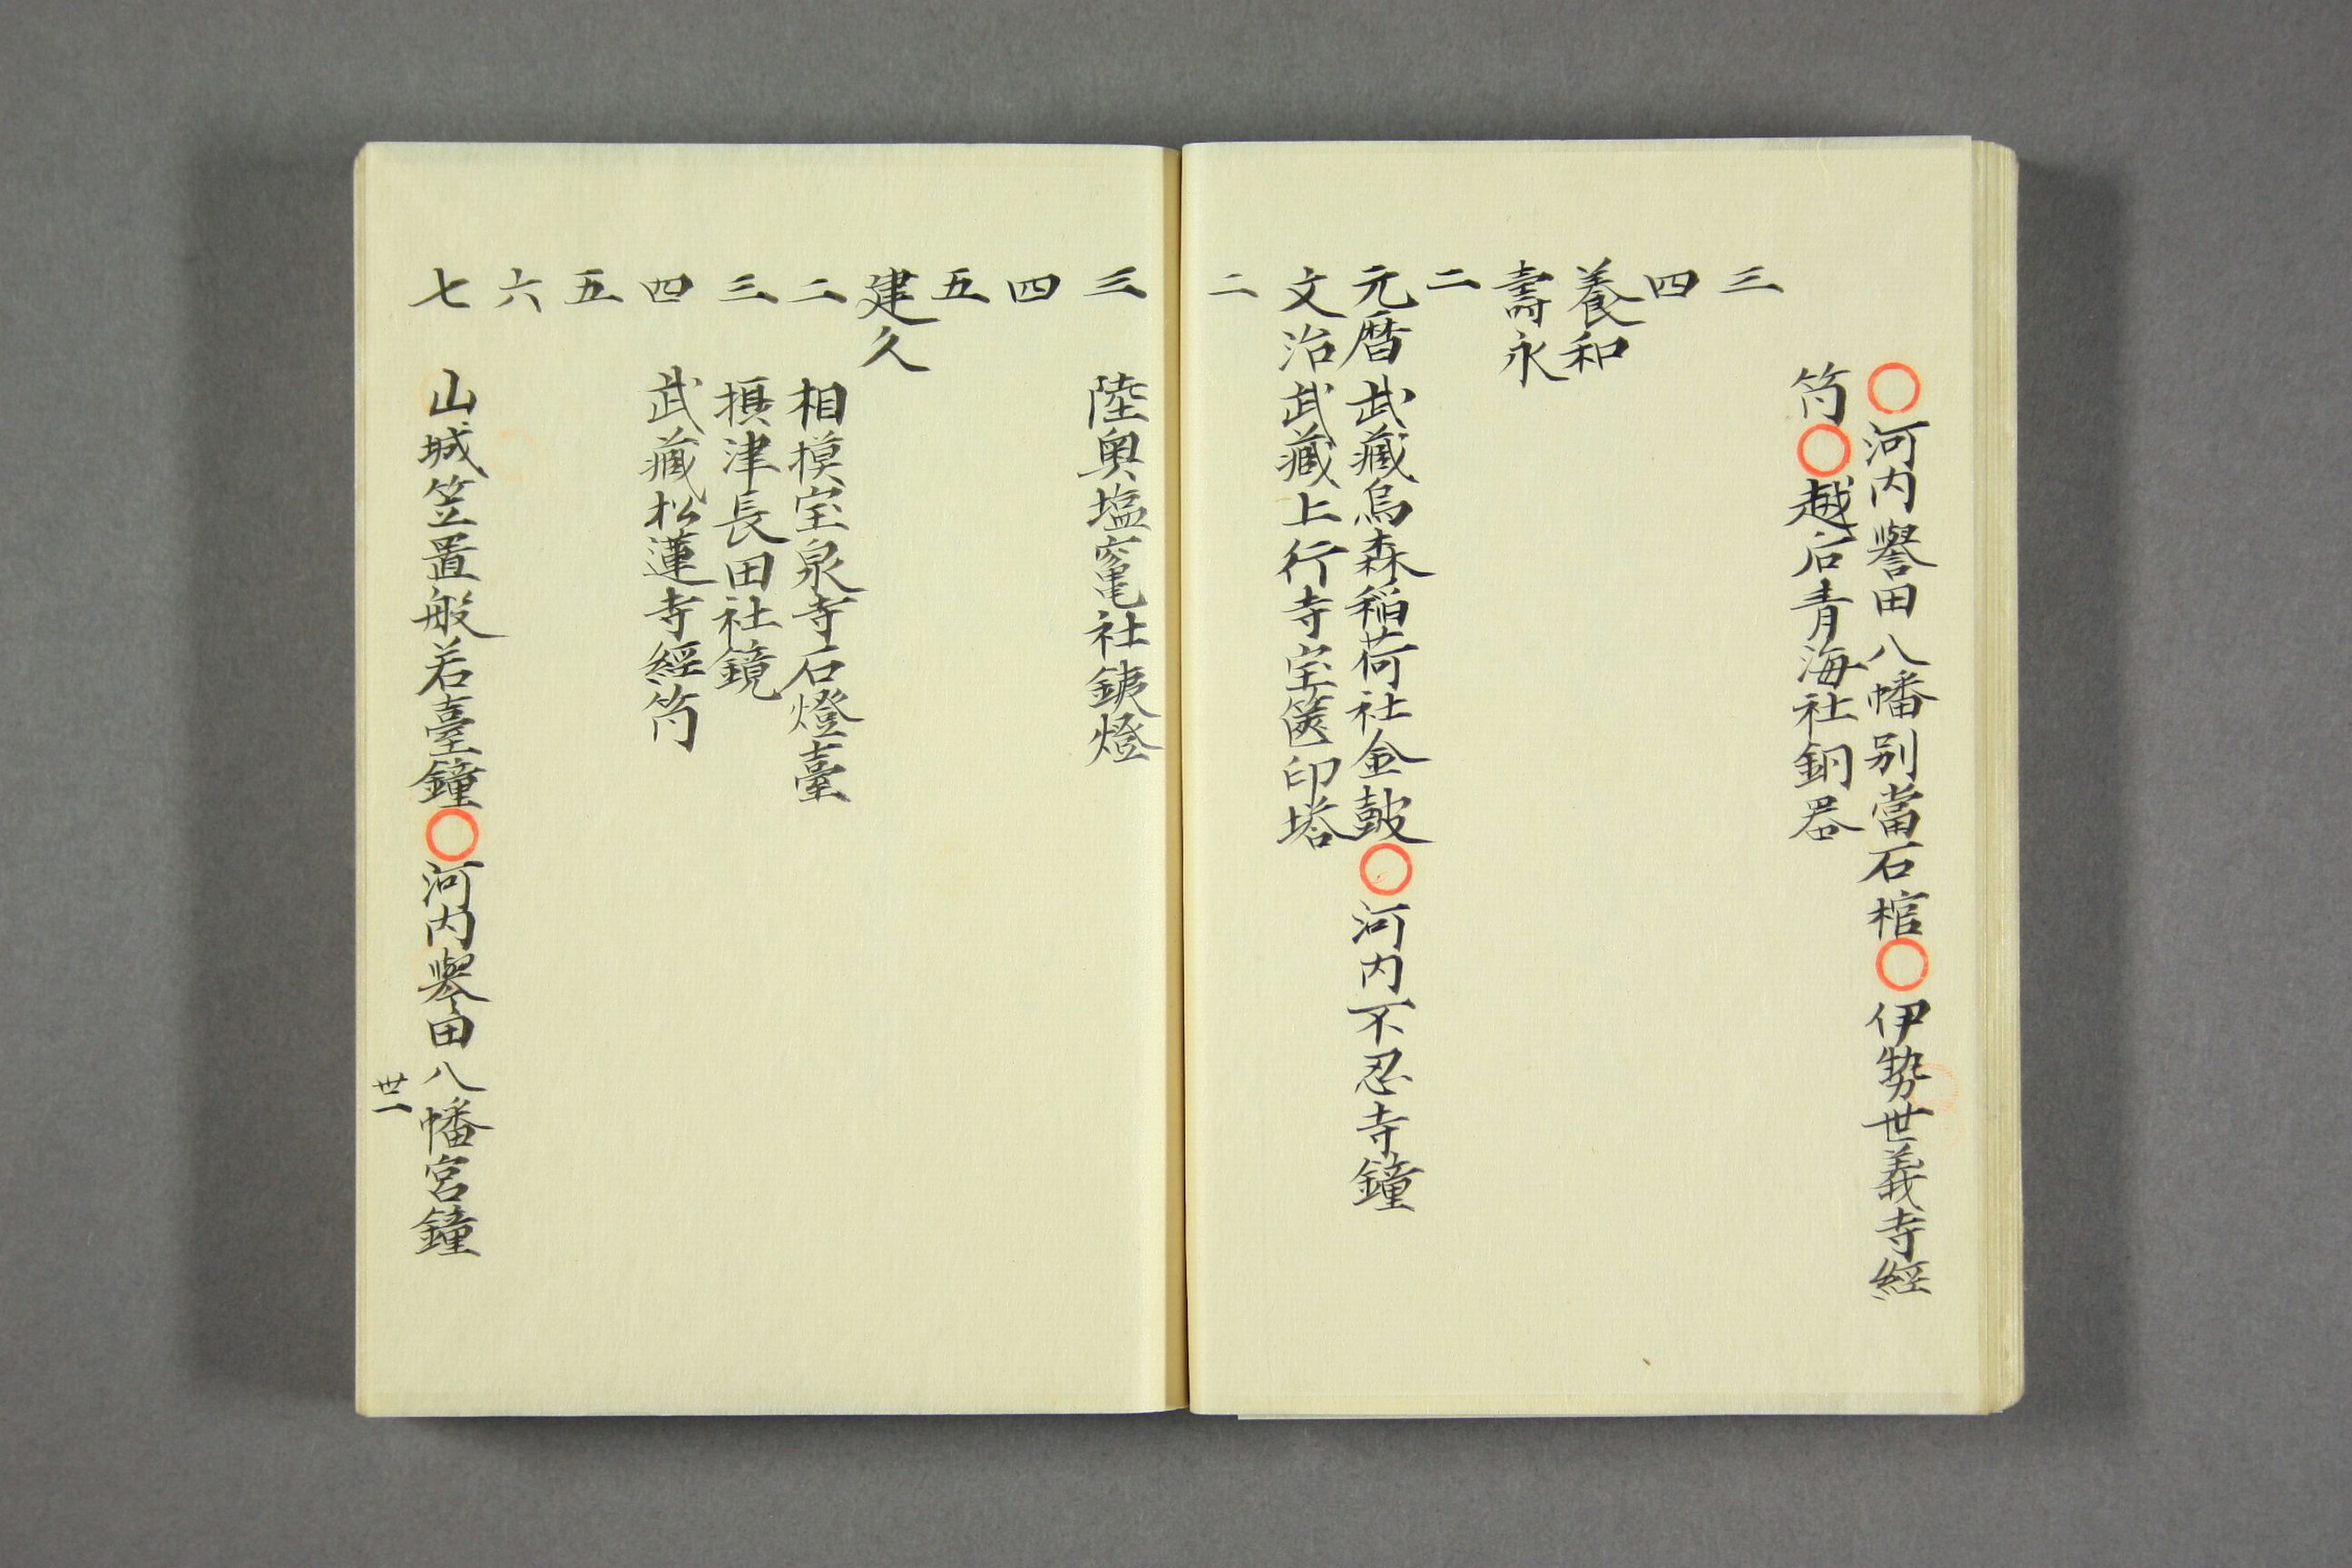 ○河内譽田八幡別當石棺○伊勢世義寺經
筒○越后青海社銅器
三
四
養和
壽永
二
元暦 武藏烏森稲荷社金皷○河内不忍寺鐘
文治 武藏上行寺宝篋印塔
二
三 陸奥塩竃社銕燈
四
五
建久
二 相摸宝泉寺石燈臺
三 摂津長田社鏡
四 武藏松蓮寺經筒
五
六
七 山城笠置般若臺鐘○河内譽田八幡宮鐘
丗一